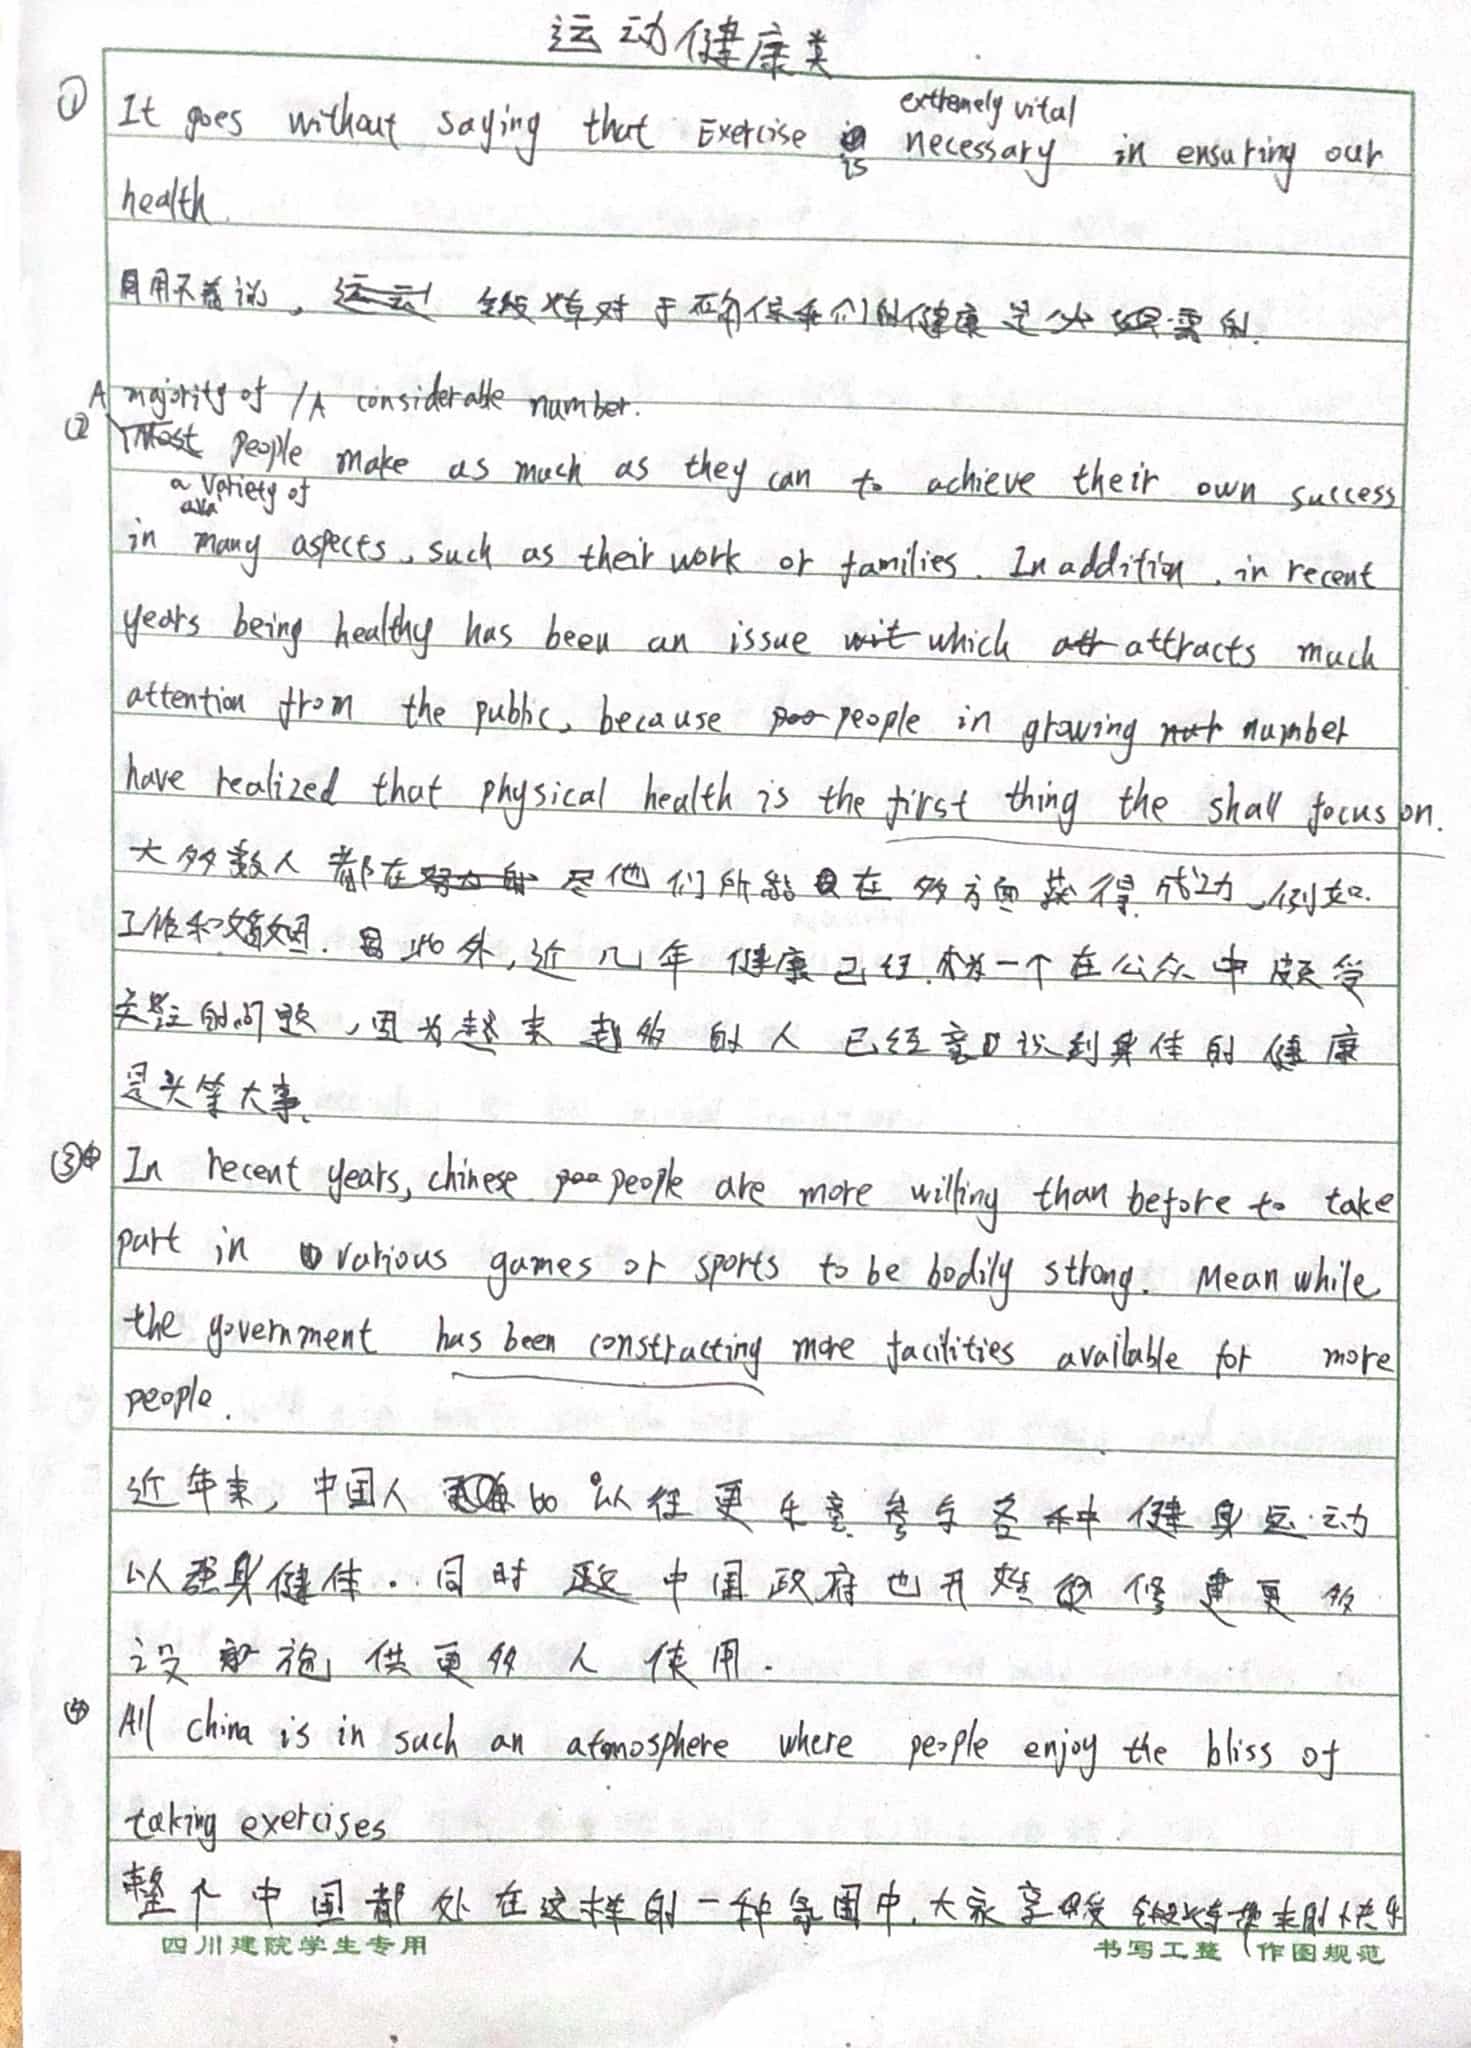 运动健康类
① extremely vital
It goes without saying that Exercise is necessary in ensuring our
health.
用不着说，锻炼对于确保我们的健康是必需的.
A majority of /A considerable number.
② Most people make as much as they can to achieve their own success
a variety of
in many aspects, such as their work or families. In addition, in recent
years being healthy has been an issue which attracts much
attention from the public, because people in growing number
have realized that physical health is the first thing the shall focus on.
大多数人都在尽他们所能在多方面获得成功,例如
工作和婚姻.此外,近几年健康已经成为一个在公众中颇受
关注的问题,因为越来越多的人已经意识到身体的健康
是头等大事.
③ In recent years, chinese people are more willing than before to take
part in various games or sports to be bodily strong. Meanwhile,
the government has been constracting more facilities available for more
people.
近年来,中国人比以往更乐意参与各种健身运动
以强身健体.同时中国政府也开始修建更多
设施供更多人使用.
④ All china is in such an atmosphere where people enjoy the bliss of
taking exercises
整个中国都处在这样的一种氛围中,大家享受锻炼带来的快乐
四川建院学生专用
书写工整 作图规范